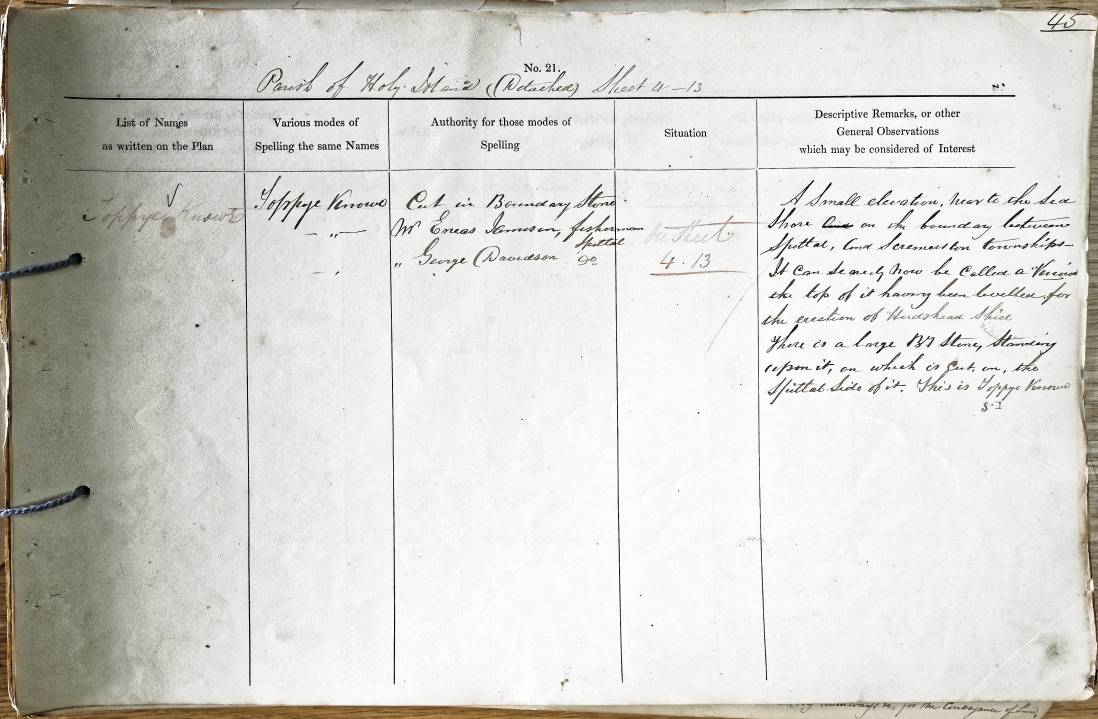 45
No. 21.
Parish of Holy Island (Detached) Sheet 4-13
List of Names
as written on the Plan
Various modes of
Spelling the same Names
Authority for those modes of
Spelling
Situation
Descriptive Remarks, or other
General Observations
which may be considered of Interest
Toppye Knowe
Toppye Knowe
- " -
- "
Cut in Boundary Stone
Mr Eneas Jamison, fisherman
Spittal
" George Davidson do
On Sheet
4.13
A Small elevation, near to the Sea
Shore and on the boundary between
Spittal, and Scremerston townships-
It can scarcely now be Called a Knowe
the top of it having been levelled for
the erection of Hudshead Shiel
There is a large Bdy Stone, Standing
upon it, on which is Cut on, the
Spittal Side of it. This is Toppye Knowe
for the Conveyance of